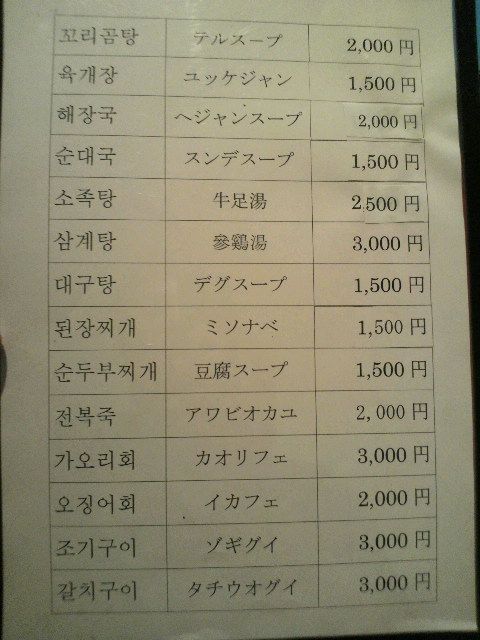 꼬리곰탕 テルスープ 2,000 円
육개장 ユッケジャン 1,500 円
해장국 ヘジャンスープ 2,000 円
순대국 スンデスープ 1,500 円
소족탕 牛足湯 2,500 円
삼계탕 參鷄湯 3,000 円
대구탕 デグスープ 1,500 円
된장찌개 ミソナベ 1,500 円
순두부찌개 豆腐スープ 1,500 円
전복죽 アワビオカユ 2,000 円
가오리회 カオリフェ 3,000 円
오징어회 イカフェ 2,000 円
조기구이 ゾギグイ 3,000 円
갈치구이 タチウオグイ 3,000 円